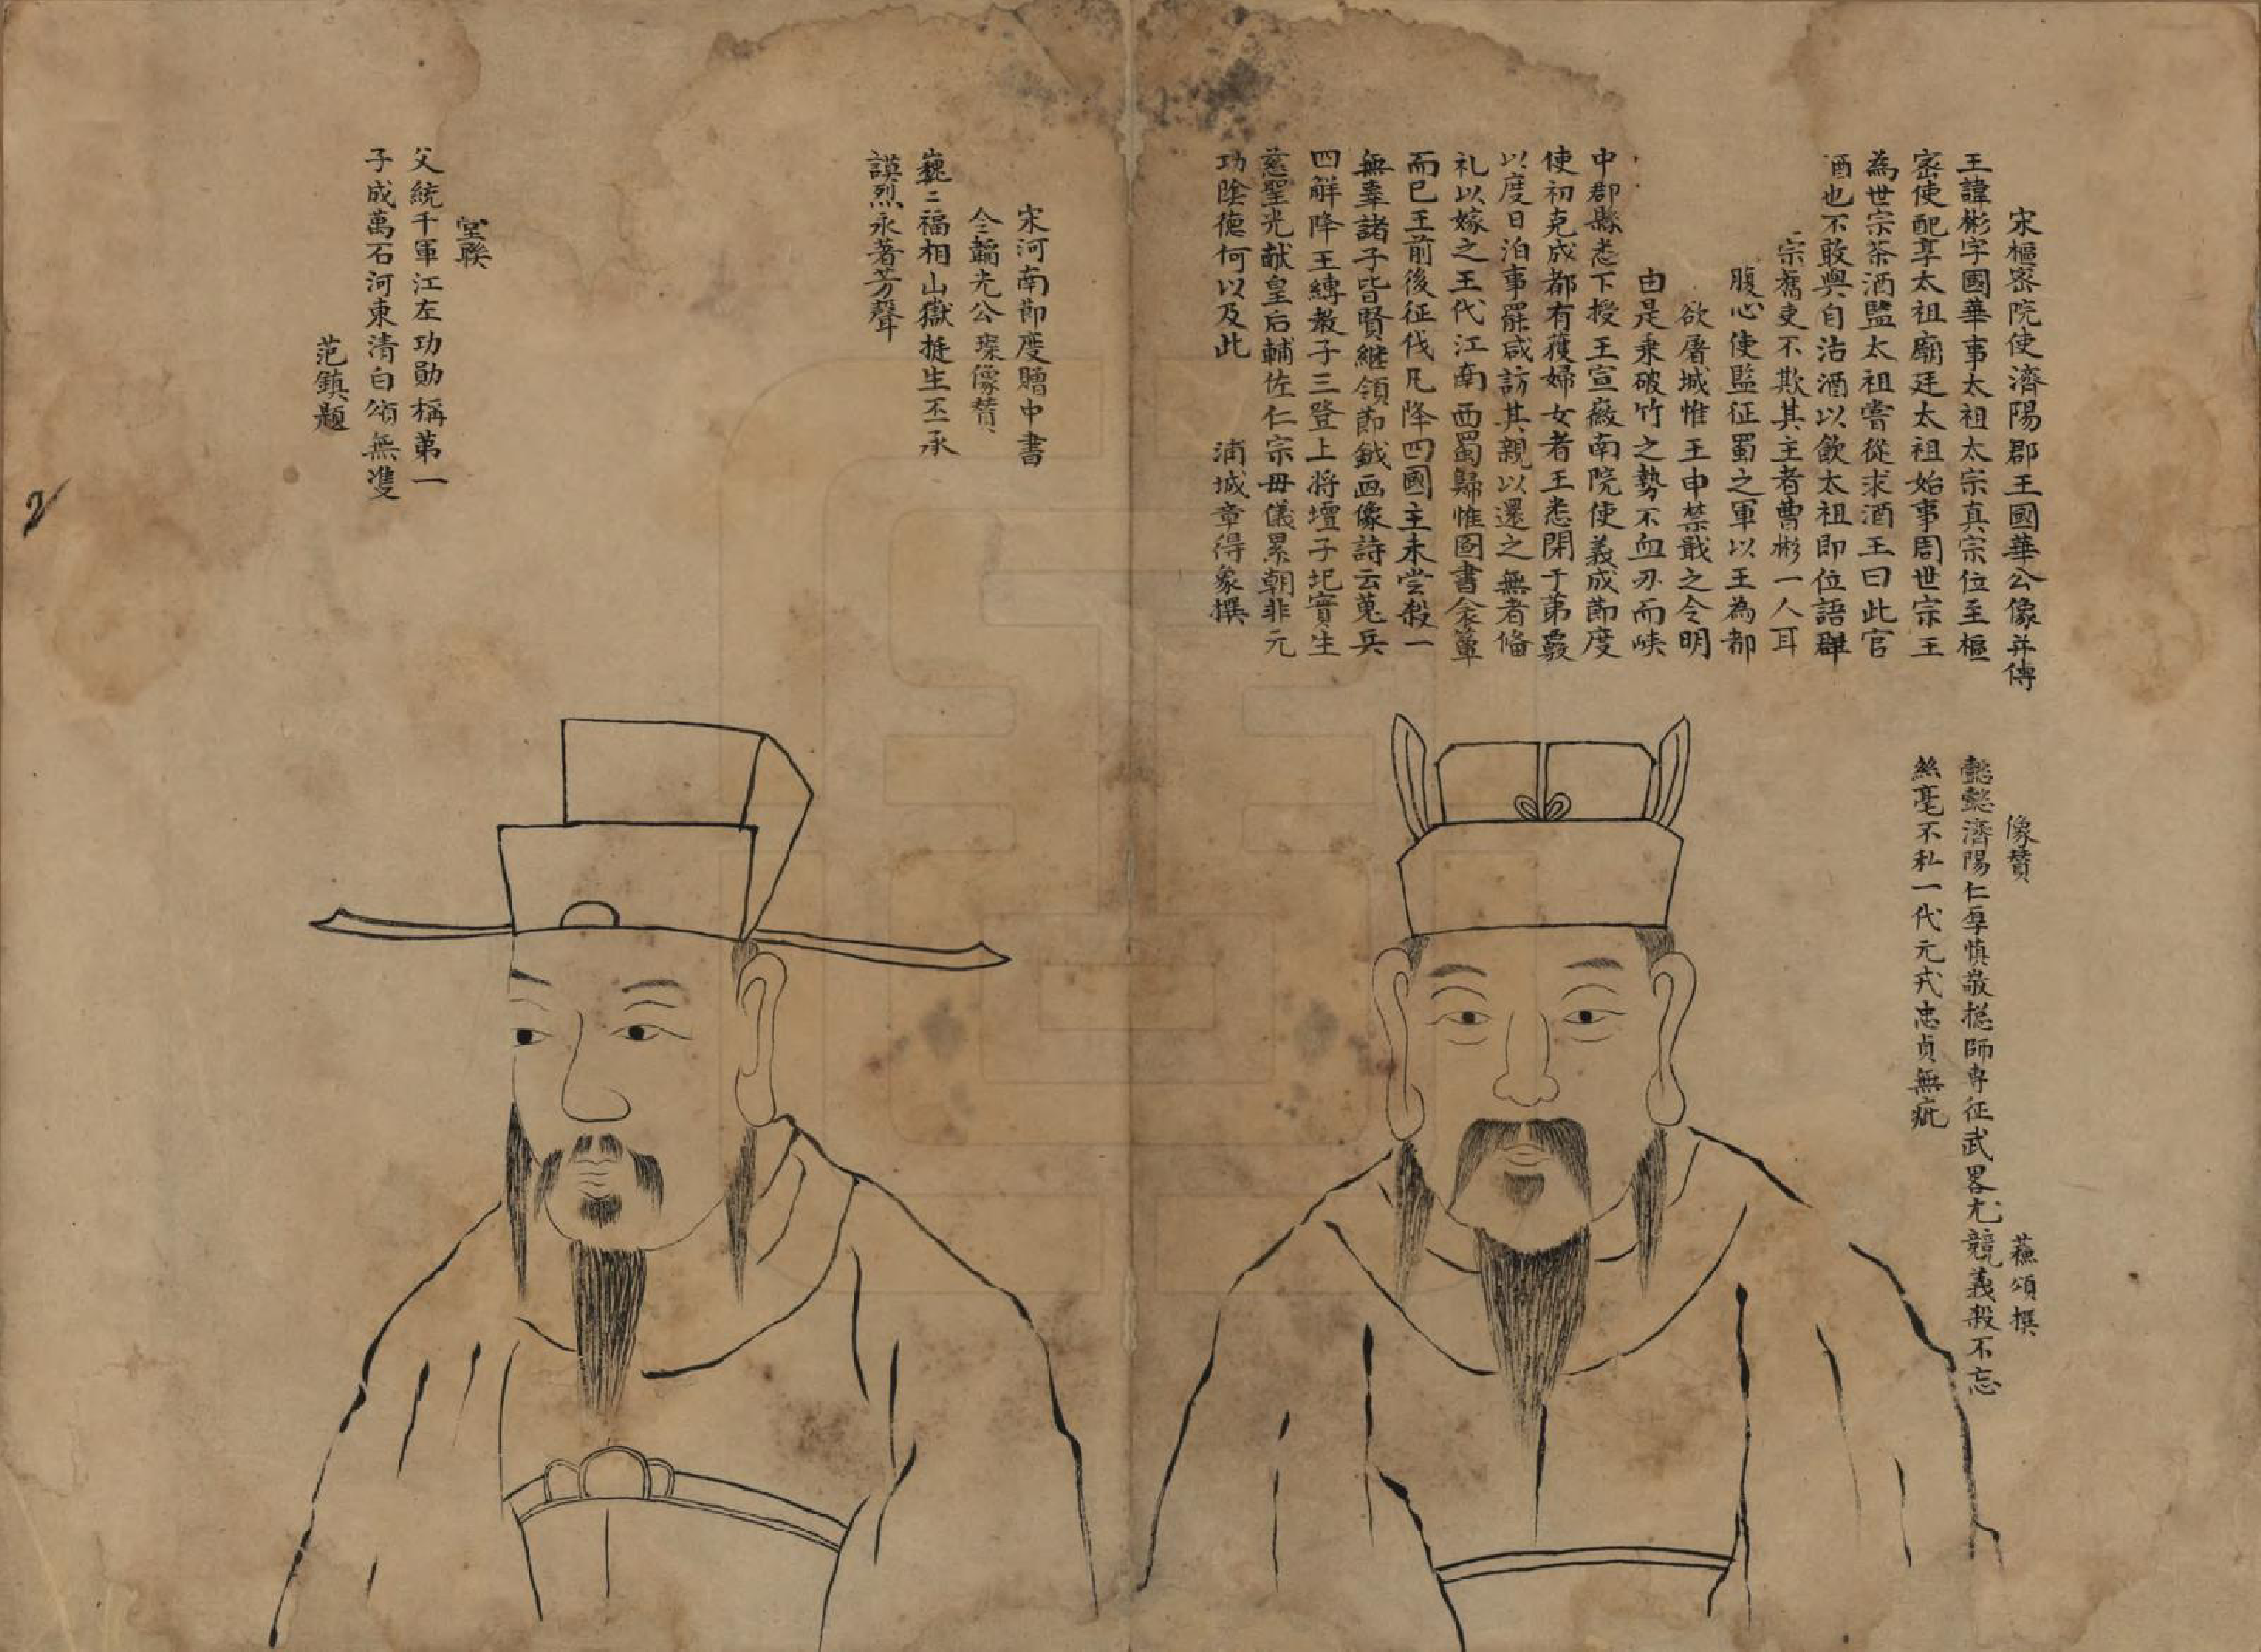 宋樞密院使濟陽郡王國華公像并傳
王諱彬字國華事太祖太宗真宗位至樞
密使配享太祖廟廷太祖始事周世宗王
為世宗茶酒監太祖嘗從求酒王曰此官
酒也不敢與自沽酒以飲太祖即位語群
宗舊吏不欺其主者曹彬一人耳
腹心使監征蜀之軍以王為都
欲屠城惟王申禁戢之令明
由是乘破竹之勢不血刃而峽
中郡縣悉下授王宣徽南院使義成節度
使初克成都有獲婦女者王悉閉于第竅
以度日洎事罷咸訪其親以還之無者偹
礼以嫁之王代江南西蜀歸惟圖書衾簟
而已王前後征伐凡降四國主未尝殺一
無辜諸子皆賢継領節鉞画像詩云蒐兵
四解降王縛教子三登上将壇子玘實生
慈聖光献皇后輔佐仁宗毋儀累朝非元
功隂德何以及此 浦城章得象撰
像贊 蘓頌撰
懿懿濟陽仁厚慎敬揔師専征武畧尤競義殺不忘
絲毫不私一代元戎忠貞無疵
宋河南節度贈中書
令韜光公璨像賛
巍〻福相山嶽挺生丕承
謨烈永著芳聲
堂聯
父統千軍江左功勋稱第一
子成萬石河東清白頌無䨇
范鎮題
2